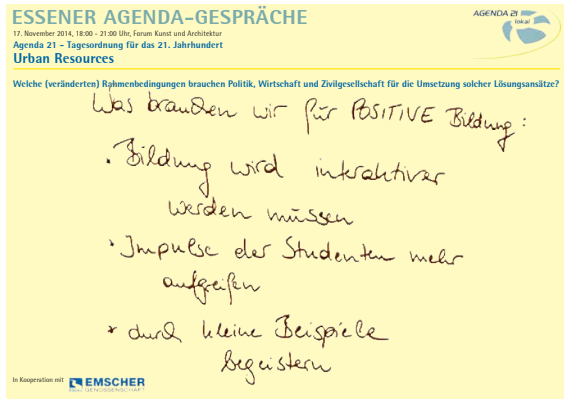 ESSENER AGENDA-GESPRÄCHE
17. November 2014, 18:00 - 21:00 Uhr, Forum Kunst und Architektur
Agenda 21 - Tagesordnung für das 21. Jahrhundert
Urban Resources
AGENDA 21
lokal
Welche (veränderten) Rahmenbedingungen brauchen Politik, Wirtschaft und Zivilgesellschaft für die Umsetzung solcher Lösungsansätze?
Was brauchen wir für POSITIVE Bildung:
• Bildung wird interaktiver
werden müssen
• Impulse der Studenten mehr
aufgreifen
• durch kleine Beispiele
begeistern
In Kooperation mit
EMSCHER
GENOSSENSCHAFT